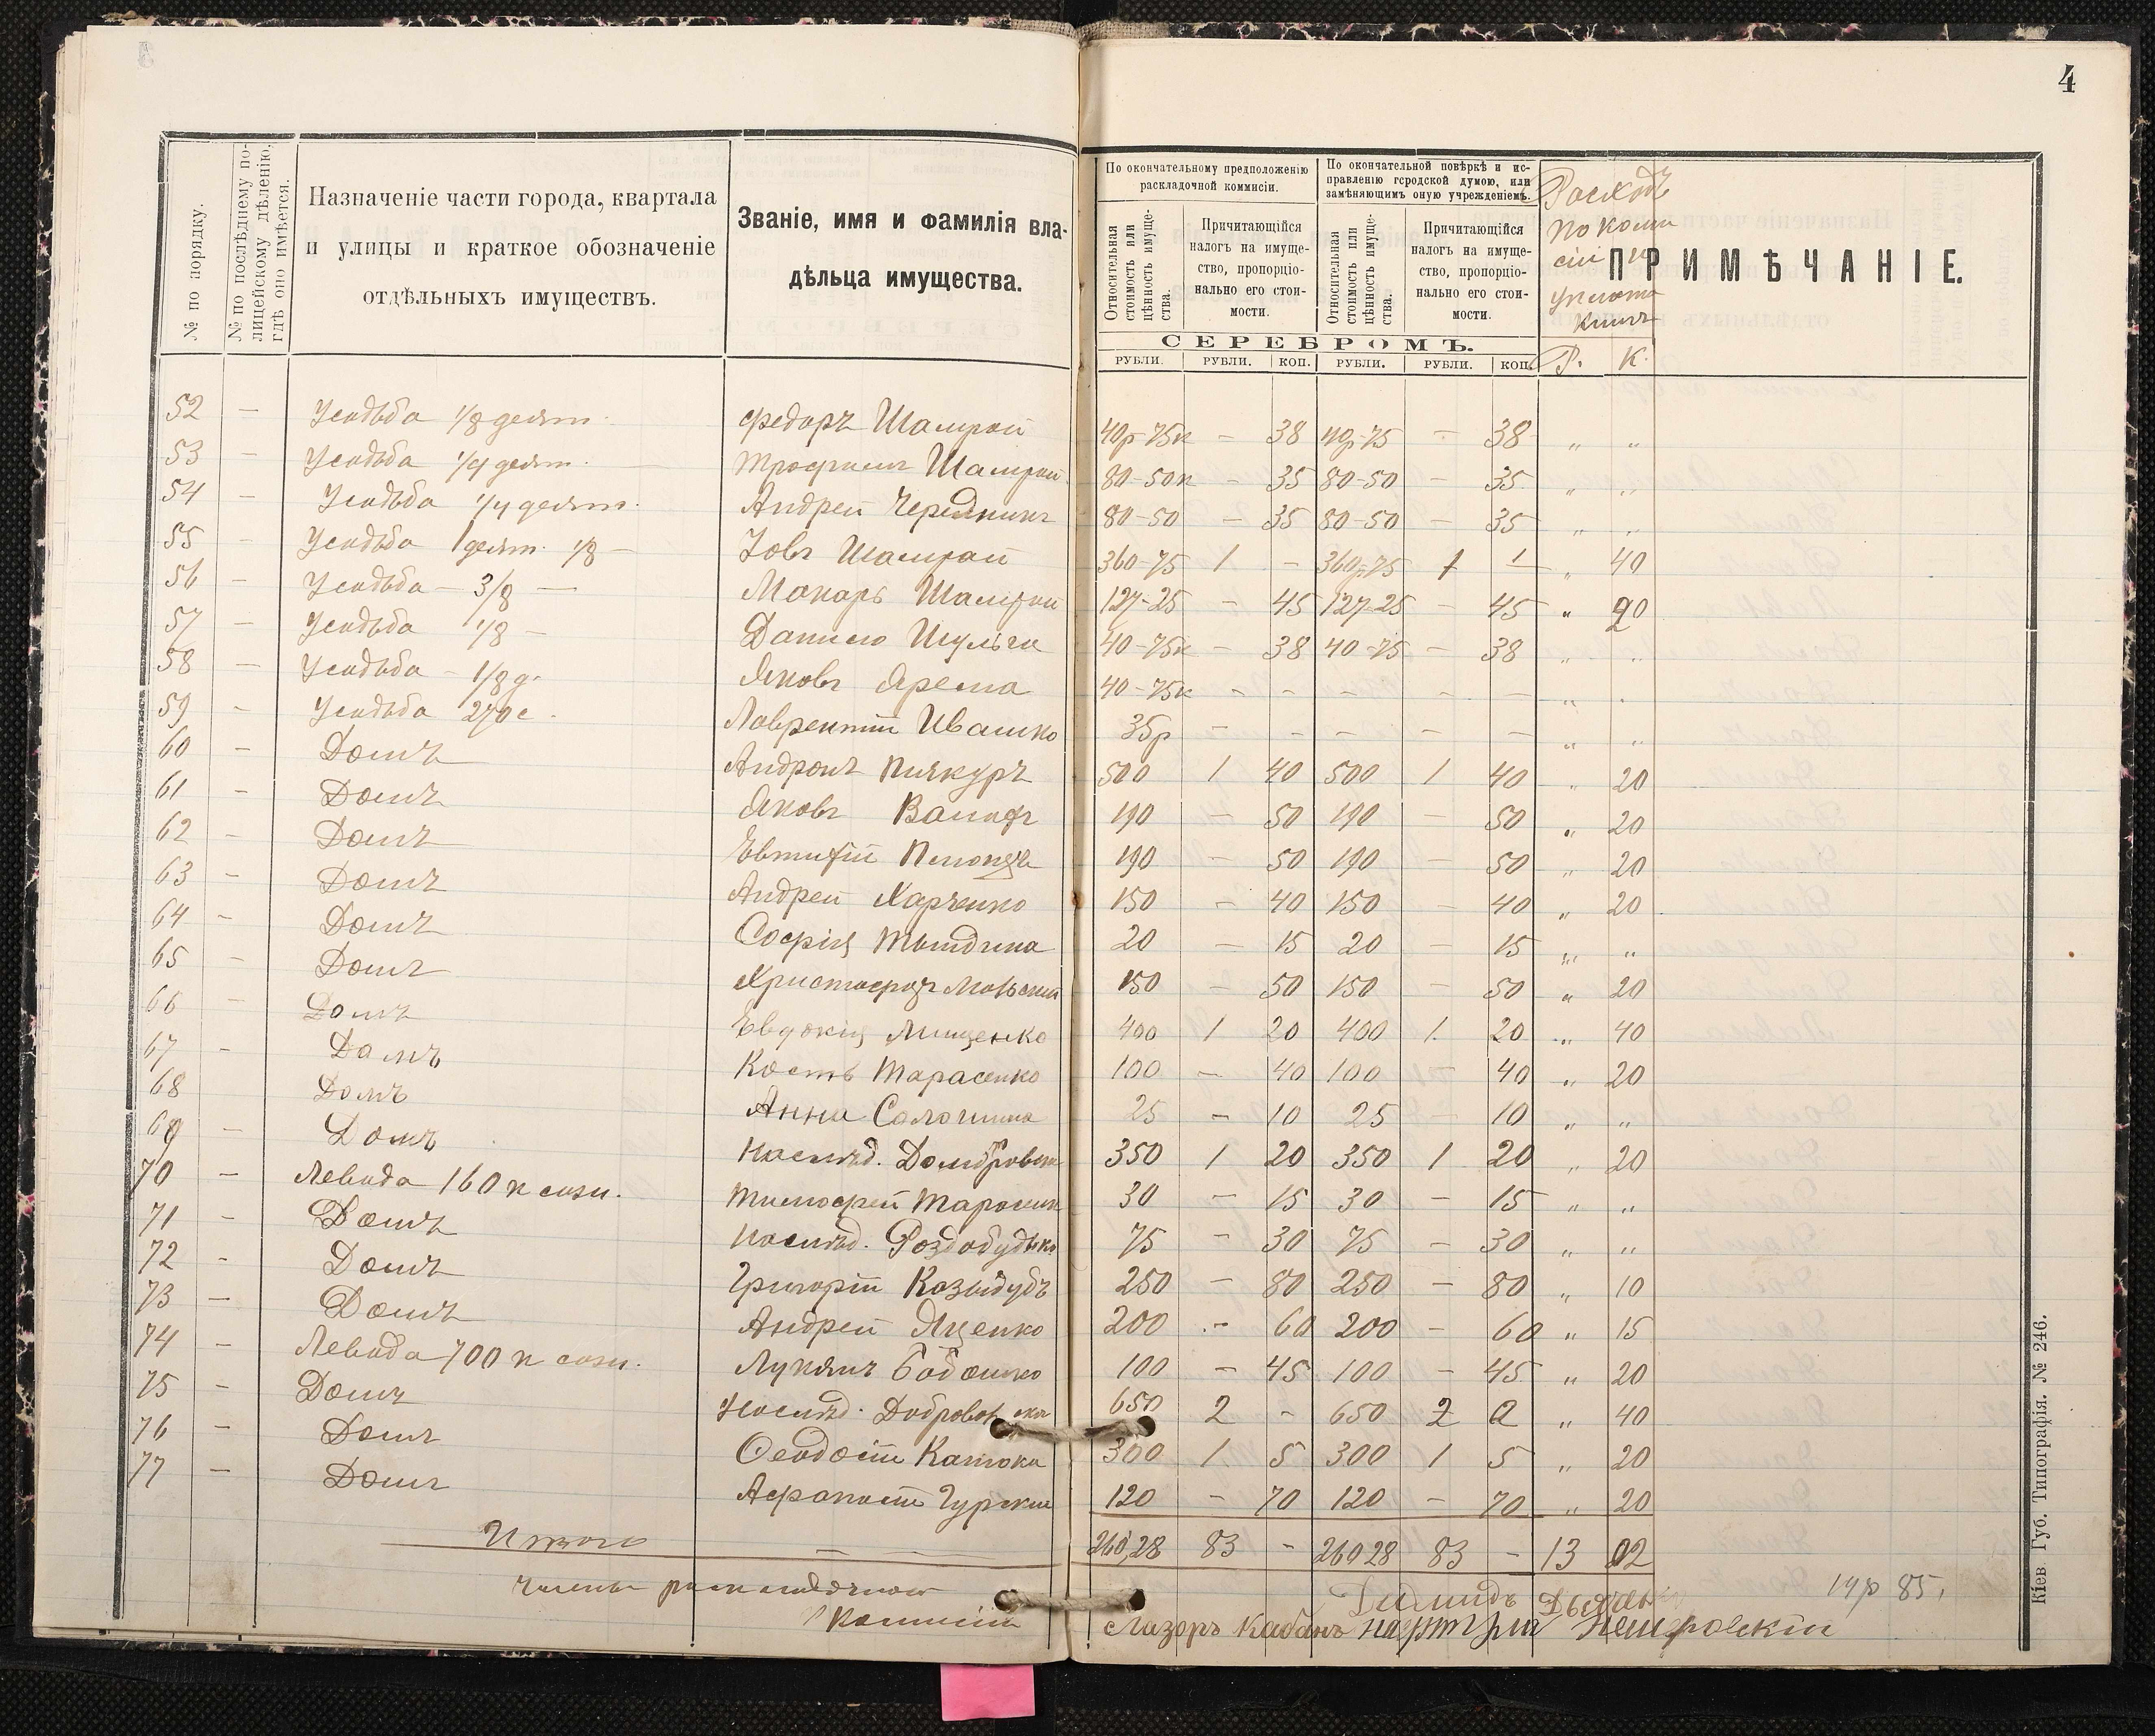 4
№ по порядку.
№ по послѣднему по-
лицейскому дѣленію,
гдѣ оно имѣется.
Назначеніе части города, квартала
и улицы и краткое обозначеніе
отдѣльныхъ имуществъ.
Званіе, имя и фамилія вла-
дѣльца имущества.
По окончательному предположенію
раскладочной комисіи.
По окончательной повѣркѣ и ис-
правленію городской думою, или
замѣняющимъ оную учрежденіемъ.
Относительная
стоимость или
цѣнность имуще-
ства.
Причитающійся
налогъ на имуще-
ство, пропорціо-
нально его стои-
мости.
Относительная
стоимость или
цѣнность имуще-
ства.
Причитающійся
налогъ на имуще-
ство, пропорціо-
нально его стои-
мости.
Расходъ
ПРИМѢЧАНІЕ.
СЕРЕБРОМЪ.
РУБЛИ. РУБЛИ. КОП. РУБЛИ. РУБЛИ. КОП. Р. К.
52 — Усадьба 1/8 десят. Федоръ Шамрай 40р-75к - 38 40р-75 - 38 " "
53 — Усадьба 1/4 десят. Трофимъ Шамрай 80-50к - 35 80-50 - 35 " "
54 — Усадьба 1/4 десят. Андрей 80-50 - 35 80-50 - 35 " "
55 — Усадьба 1 десят. 1/8 — Іовъ Шамрай 360-75 1 - 360р-75 1 " 40
56 — Усадьба - 3/8 — Макаръ Шамрай 127-25 - 45 127-25 - 45 " 20
57 — Усадьба 1/8 — Данило Шульга 40-75к - 38 40-75 - 38 " "
58 — Усадьба - 1/8 д. Яковъ Ярема 40-75к - - - - - " "
59 — Усадьба 270 с. Лаврентій Ивашко 35р - - - - - " "
60 — Домъ Андронъ Пичкуръ 500 1 40 500 1 40 " 20
61 - Домъ Яковъ 190 - 50 190 - 50 " 20
62 - Домъ Евтифій 190 - 50 190 - 50 " 20
63 - Домъ Андрей Харченко 150 - 40 150 - 40 " 20
64 - Домъ Софія 20 - 15 20 - 15 " "
65 - Домъ 150 - 50 150 - 50 " 20
66 - Домъ Евдокія Мищенко 400 1 20 400 1 20 " 40
67 - Домъ Кость Тарасенко 100 - 40 100 - 40 " 20
68 Домъ Анна 25 - 10 25 - 10 " "
69 - Домъ Наслѣд. Домбровск 350 1 20 350 1 20 " 20
70 - Левада 160 к саж. Тимофей 30 - 15 30 - 15 " "
71 - Домъ Наслѣд. Роздобудько 75 - 30 75 - 30 " "
72 - Домъ Григорій Козыдубъ 250 - 80 250 - 80 " 10
73 - Домъ Андрей Яценко 200 - 60 200 - 60 " 15
74 - Левада 700 к саж. Лукянъ 100 - 45 100 - 45 " 20
75 - Домъ Наслѣд. 650 2 - 650 2 " 40
76 - Домъ Феодосій 300 1 5 300 1 5 " 20
77 — Домъ Афанасій Гурскій 120 - 70 120 - 70 " 20
Итого 260,28 83 - 26028 83 - 13 02
Члены раскладочной
Комисіи
14р 85.
Лазоръ Кабанъ
Кіев. Губ. Типографія. № 246.